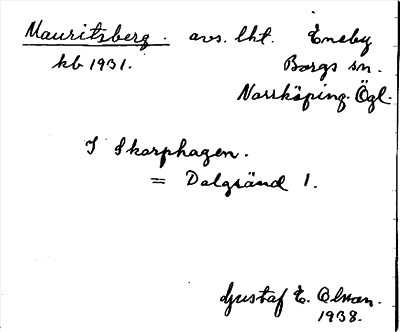 Mauritsberg. avs. lht. Eneby
kb 1931. Borgs sn.
Norrköping. Ögl.
I Skarphagen.
= Dalgränd 1.
Gustaf E. Olsson.
1938.